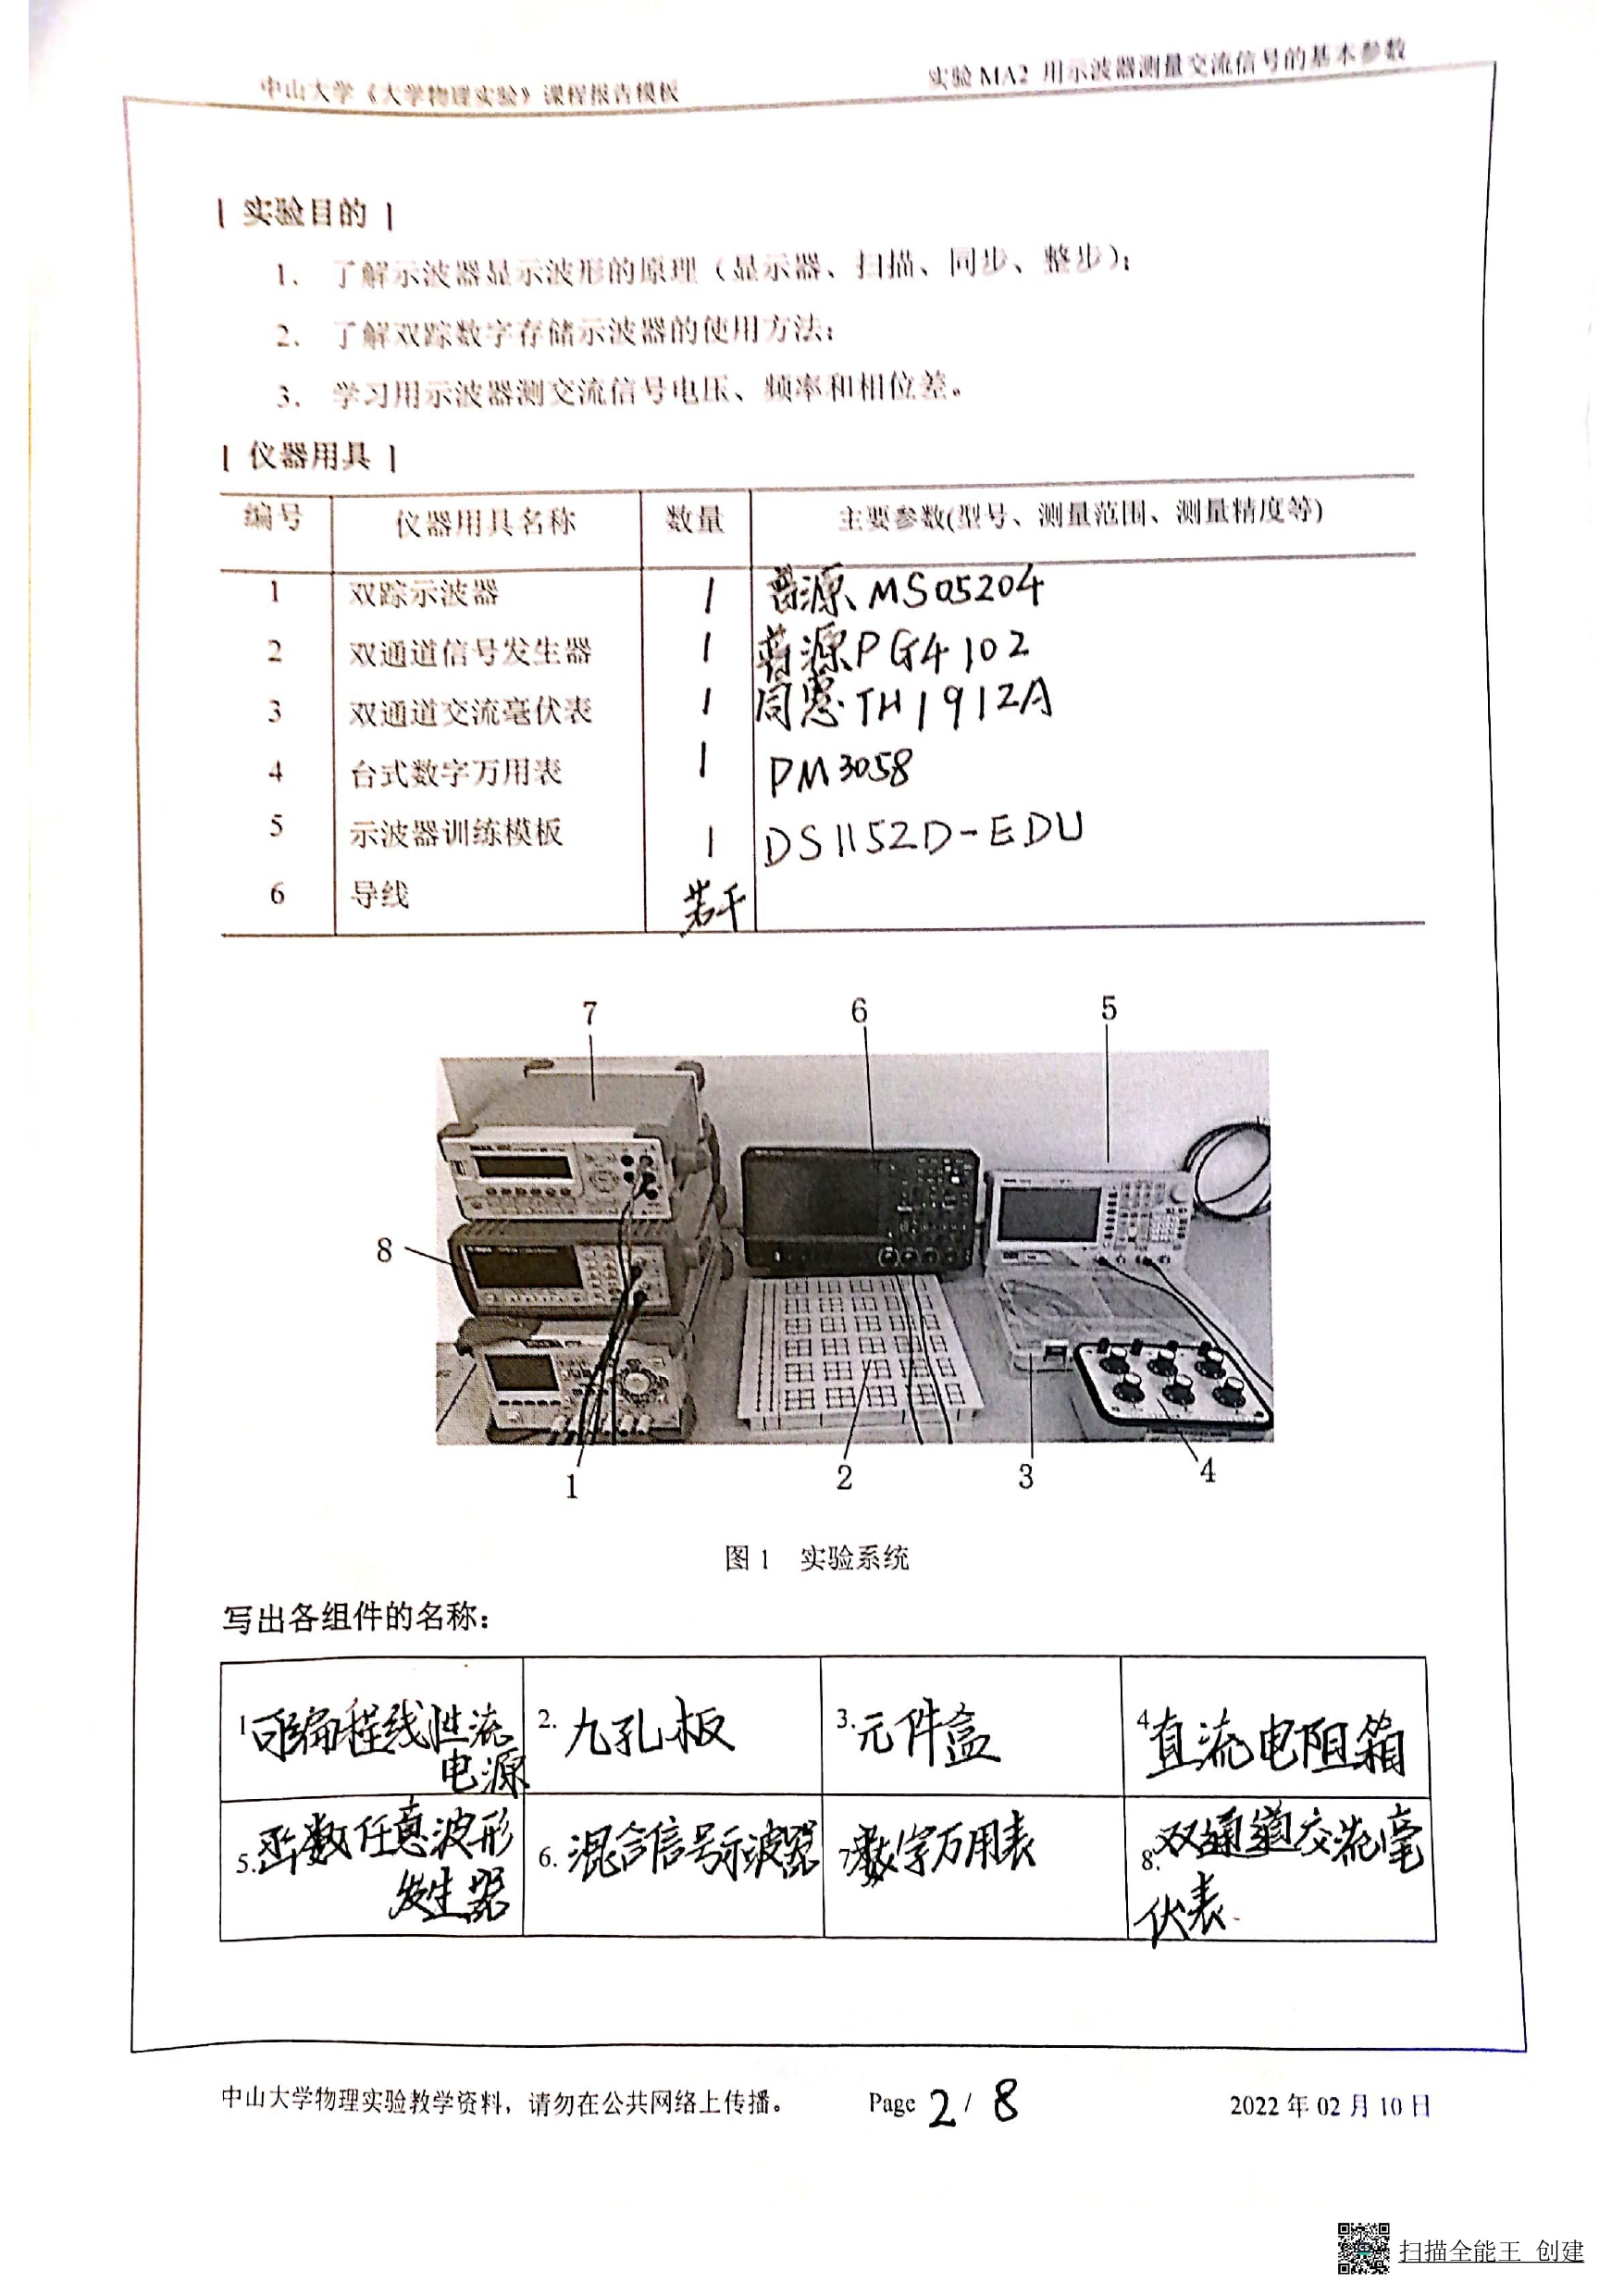 中山大学《大学物理实验》课程报告模板
实验 MA2 用示波器测量交流信号的基本参数
| 实验目的 |
1. 了解示波器显示波形的原理（显示器、扫描、同步、整步）；
2. 了解双踪数字存储示波器的使用方法；
3. 学习用示波器测交流信号电压、频率和相位差。
| 仪器用具 |
编号 仪器用具名称 数量 主要参数(型号、测量范围、测量精度等)
1 双踪示波器 1 普源 MS05204
2 双通道信号发生器 1 普源 PG4102
3 双通道交流毫伏表 1 同惠 TH1912A
4 台式数字万用表 1 PM3058
5 示波器训练模板 1 DS1152D-EDU
6 导线 若干
7 6 5
8
1 2 3 4
图 1 实验系统
写出各组件的名称：
1 可编程线性流电源 2. 九孔板 3. 元件盒 4 直流电阻箱
5. 函数任意波形发生器 6. 混合信号示波器 7 数字万用表 8. 双通道交流毫伏表
中山大学物理实验教学资料，请勿在公共网络上传播。 Page 2 / 8 2022 年 02 月 10 日
扫描全能王 创建